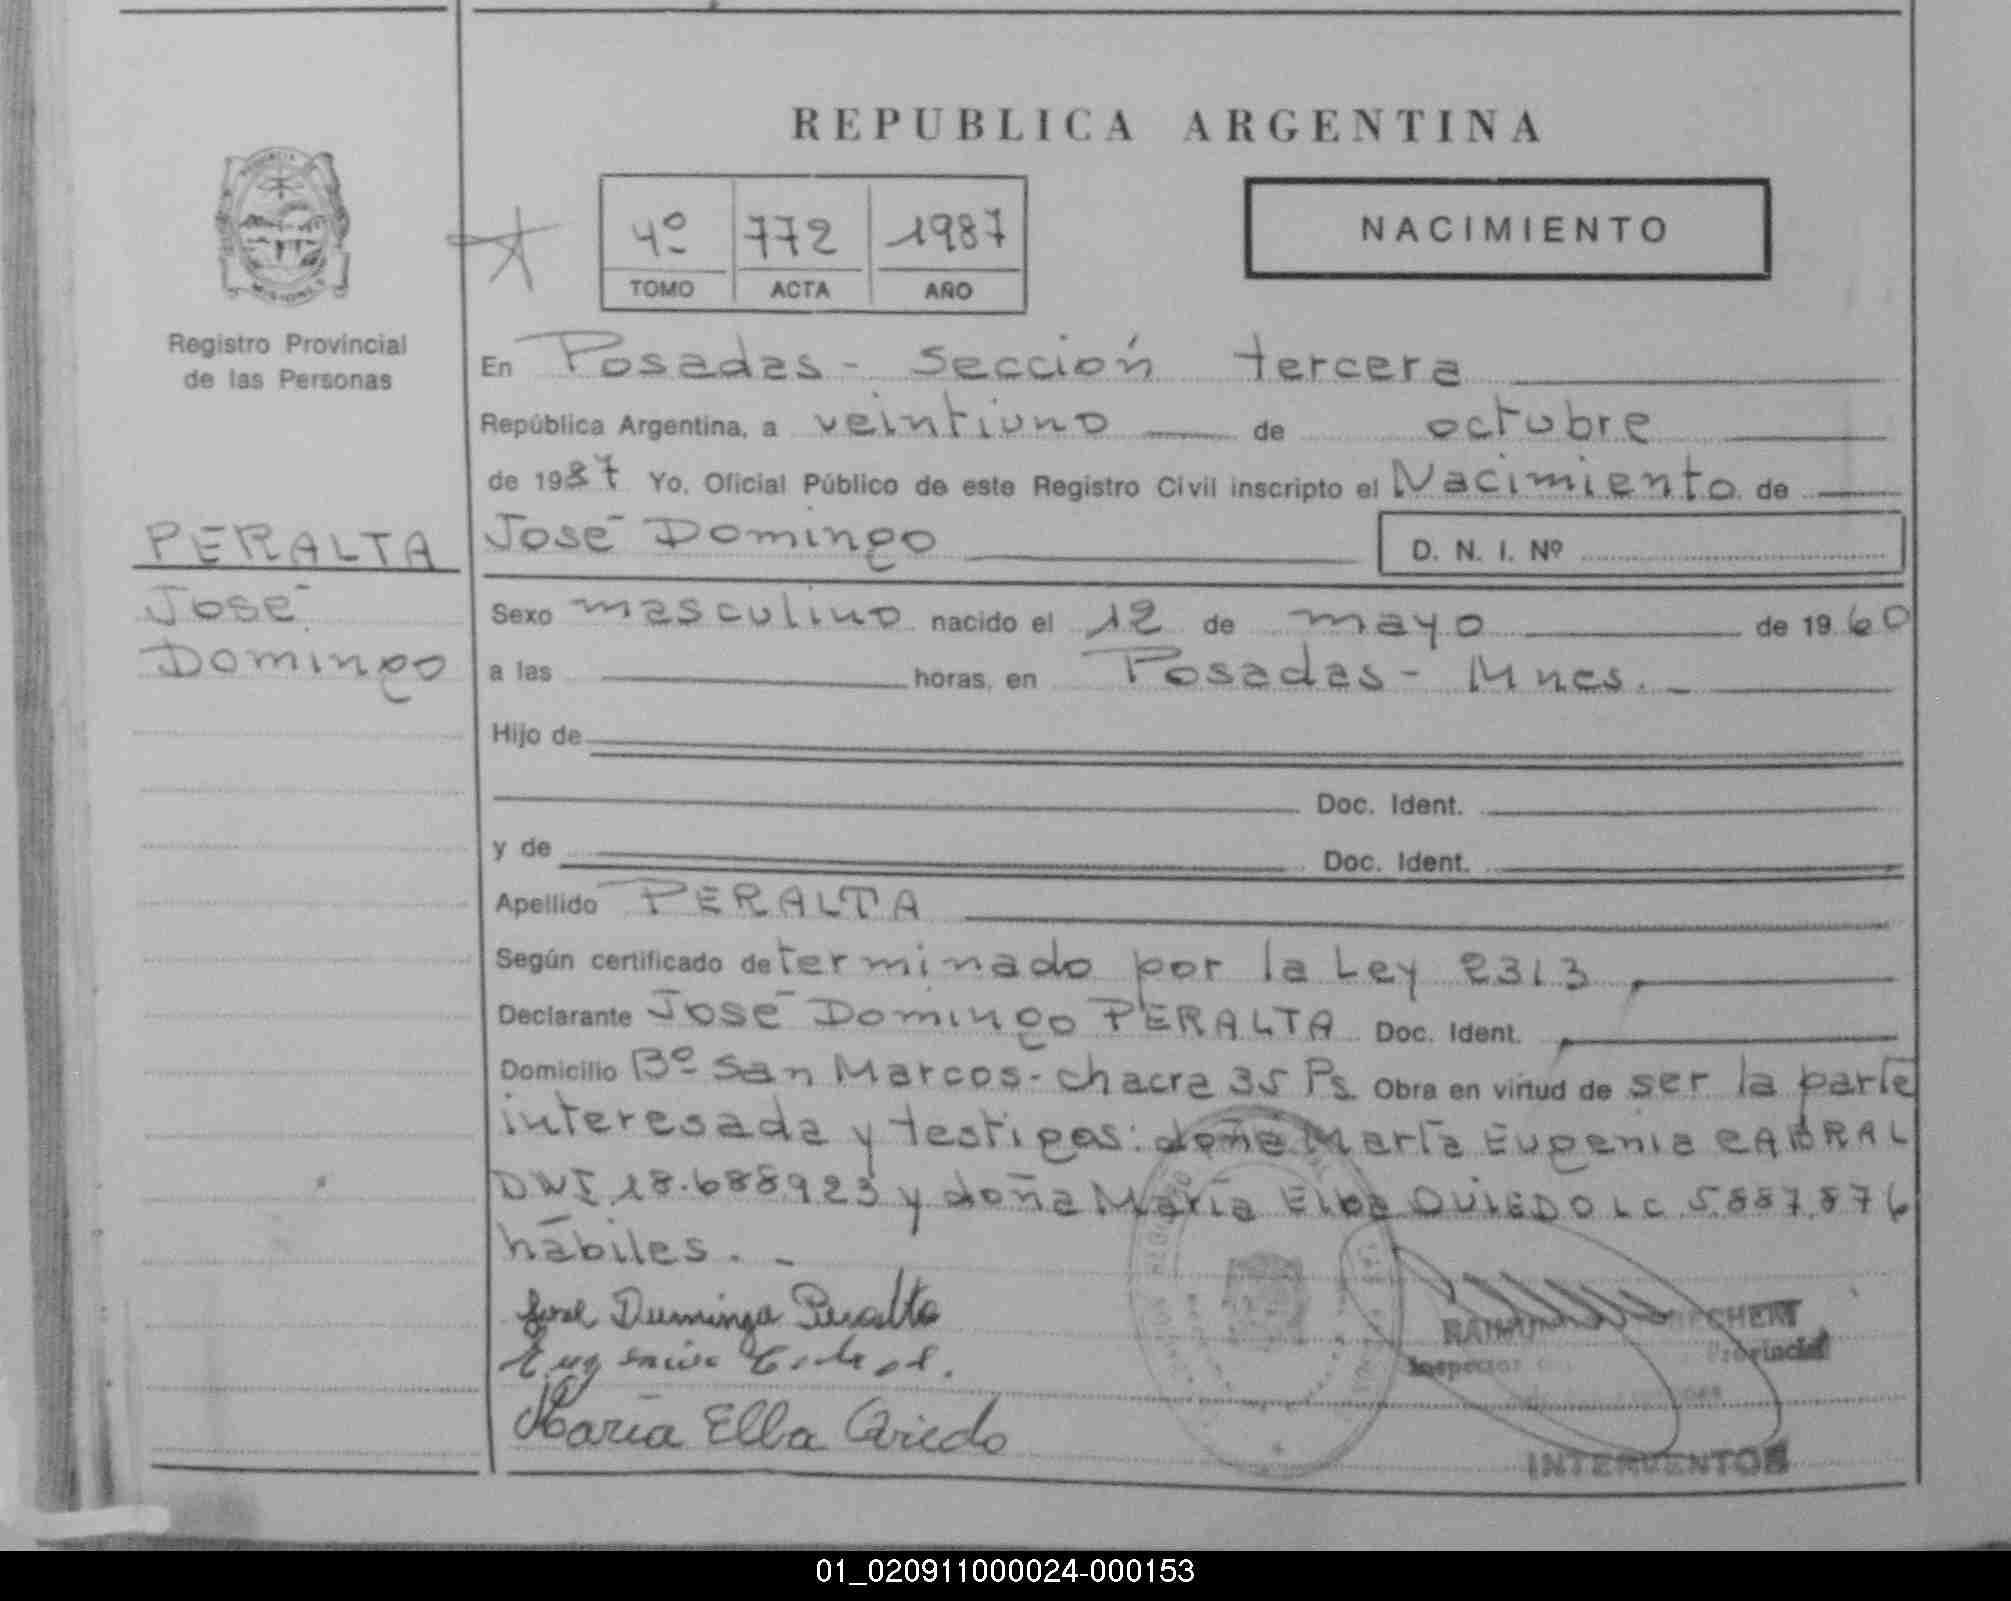 REPUBLICA ARGENTINA
4º 772 1987
TOMO ACTA AÑO
NACIMIENTO
MISIONES
Registro Provincial
de las Personas
PERALTA
José
Domingo
En Posadas - Sección tercera
República Argentina, a veintiuno de octubre
de 1987 Yo, Oficial Público de este Registro Civil inscripto el Nacimiento de
José Domingo D. N. I. Nº
Sexo masculino nacido el 12 de mayo de 1960
a las horas, en Posadas - Mnes. -
Hijo de
Doc. Ident.
y de Doc. Ident.
Apellido PERALTA
Según certificado determinado por la Ley 2313
Declarante José Domingo PERALTA Doc. Ident.
Domicilio Bº San Marcos - chacra 35 Ps. Obra en virtud de ser la parte
interesada y testigos: doña María Eugenia CABRAL
DNI 18.688923 y doña María Elba OVIEDO LC 5.887.876
hábiles. -
Jose Dumingo Peralta
María Elba Oviedo
Inspector
Provincial
INTERVENTOR
01_020911000024-000153